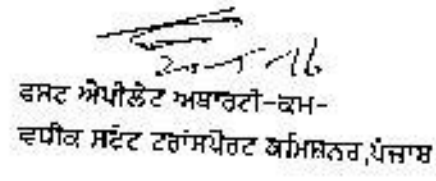 ਫਸਟ ਐਪੀਲੇਟ ਅਥਾਰਟੀ-ਕਮ-
ਵਧੀਕ ਸਟੇਟ ਟਰਾਂਸਪੋਰਟ ਕਮਿਸ਼ਨਰ,ਪੰਜਾਬ